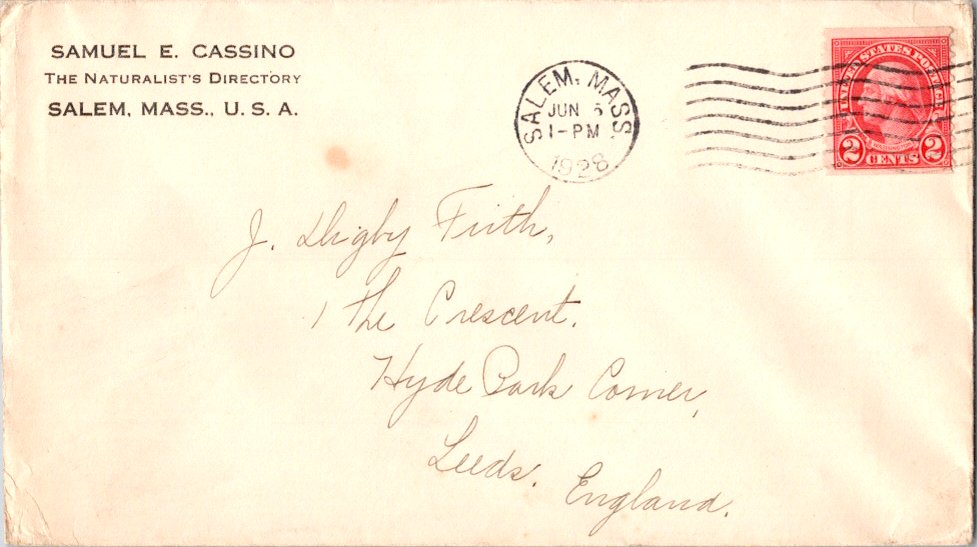 SAMUEL E. CASSINO
THE NATURALIST'S DIRECTORY
SALEM, MASS., U. S. A.
SALEM, MASS.
JUN 5
1-PM
1928
UNITED STATES POSTAGE
2 CENTS 2
J. Digby Firth,
1 The Crescent.
Hyde Park Corner,
Leeds. England.